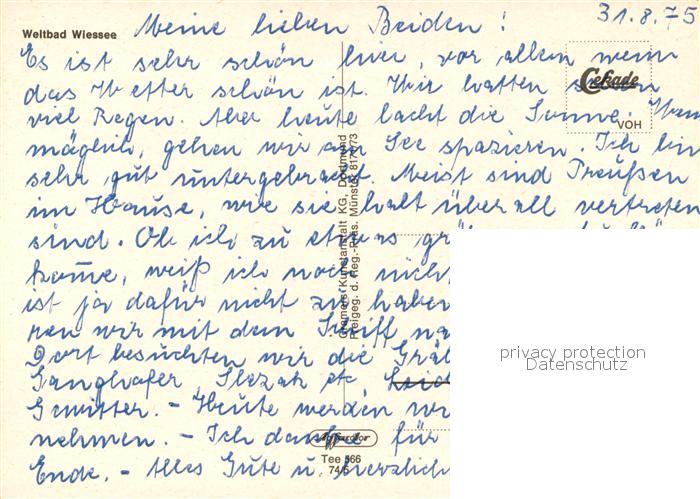 Weltbad Wiessee
Meine lieben Beiden!
31.8.75
Es ist sehr schön hier, vor allem wenn
das Wetter schön ist. Wir hatten schon
viel Regen. Aber heute lacht die Sonne. Wenn
möglich, gehen wir am See spazieren. Ich bin
sehr gut untergebracht. Meist sind Preußen
im Hause, wie sie halt überall vertreten
sind. Ob ich zu etwas
komme, weiß ich noch nicht
ist ja dafür nicht zu haben
ren wir mit dem Schiff na
Dort besuchten wir die Gräb
Ganghofer, Slezak etc
Gewitter. - Heute werden wi
nehmen. - Ich danke für
Ende. - Alles Gute u. herzlich
Cekade
VOH
Cramers Kunstanstalt KG, Dortmund
Freigeg. d. Reg.-Präs. Münster
Tee 566
74/5
privacy protection
Datenschutz